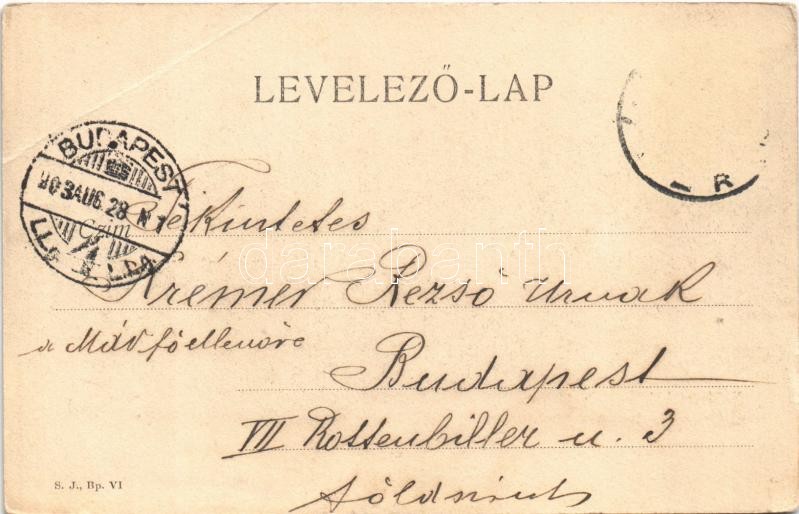 LEVELEZŐ-LAP
BUDAPEST
903 AUG. 28 N 7
Czim
R
Tekintetes
Krémer Rezső Urnak
a Máv főellenőre
Budapest
VII Rottenbiller u. 3
földszint
S. J., Bp. VI
darabanth